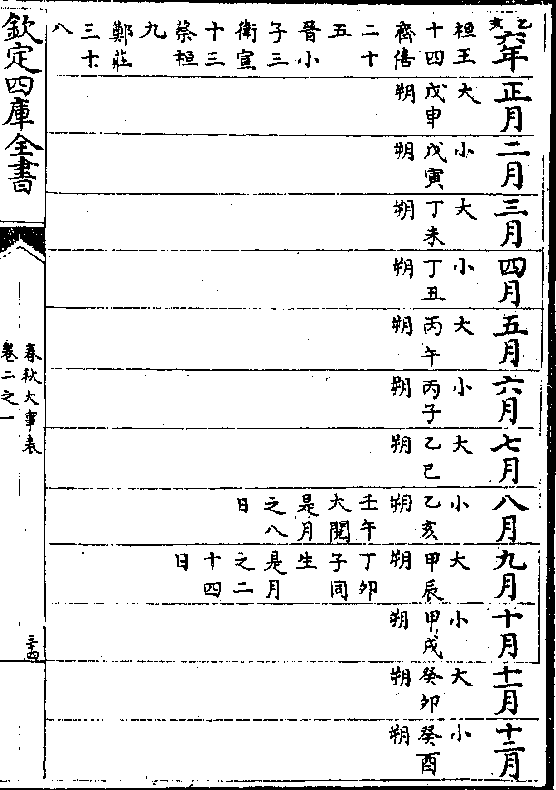 乙亥
六年
桓王
十四
齊僖
二十
五
晉小
子三
衛宣
十三
蔡桓
九
鄭莊
三十
八
正月
大
戊申
朔
二月
小
戊寅
朔
三月
大
丁未
朔
四月
小
丁丑
朔
五月
大
丙午
朔
六月
小
丙子
朔
七月
大
乙巳
朔
八月
小
乙亥
朔
壬午
大閱
是月
之八
日
九月
大
甲辰
朔
丁卯
子同
生
是月
之二
十四
日
十月
小
甲戌
朔
十一月
大
癸卯
朔
十二月
小
癸酉
朔
欽定四庫全書
春秋大事表
卷二之一